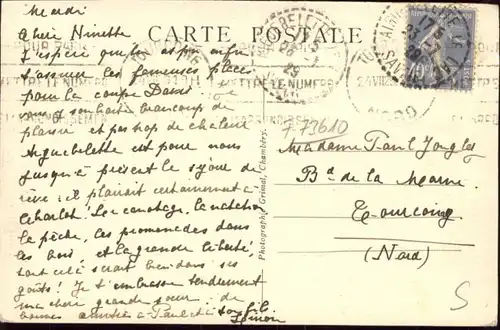 Mardi
CARTE POSTALE
Chère Ninette
J'espère que
t'assurer les fameuses places
pour la coupe Davis
vous souhaite beaucoup de
plaisir et pas trop de chaleur
Aiguebelette est pour nous
jusqu'à présent le séjour de
rêve : il plairait certainement à
Charlot. Le canotage, la natation
la pêche, les promenades dans
les bois, et la grande liberté,
tout cela serait bien dans ses
goûts! Je t'embrasse tendrement
ma chère grande sœur, de
bonnes amitiés à Paul et à ton fils
Simon
Photographie Grimal, Chambéry.
F 73610
Madame Paul
Bd de la Marne
Tourcoing
(Nord)
S